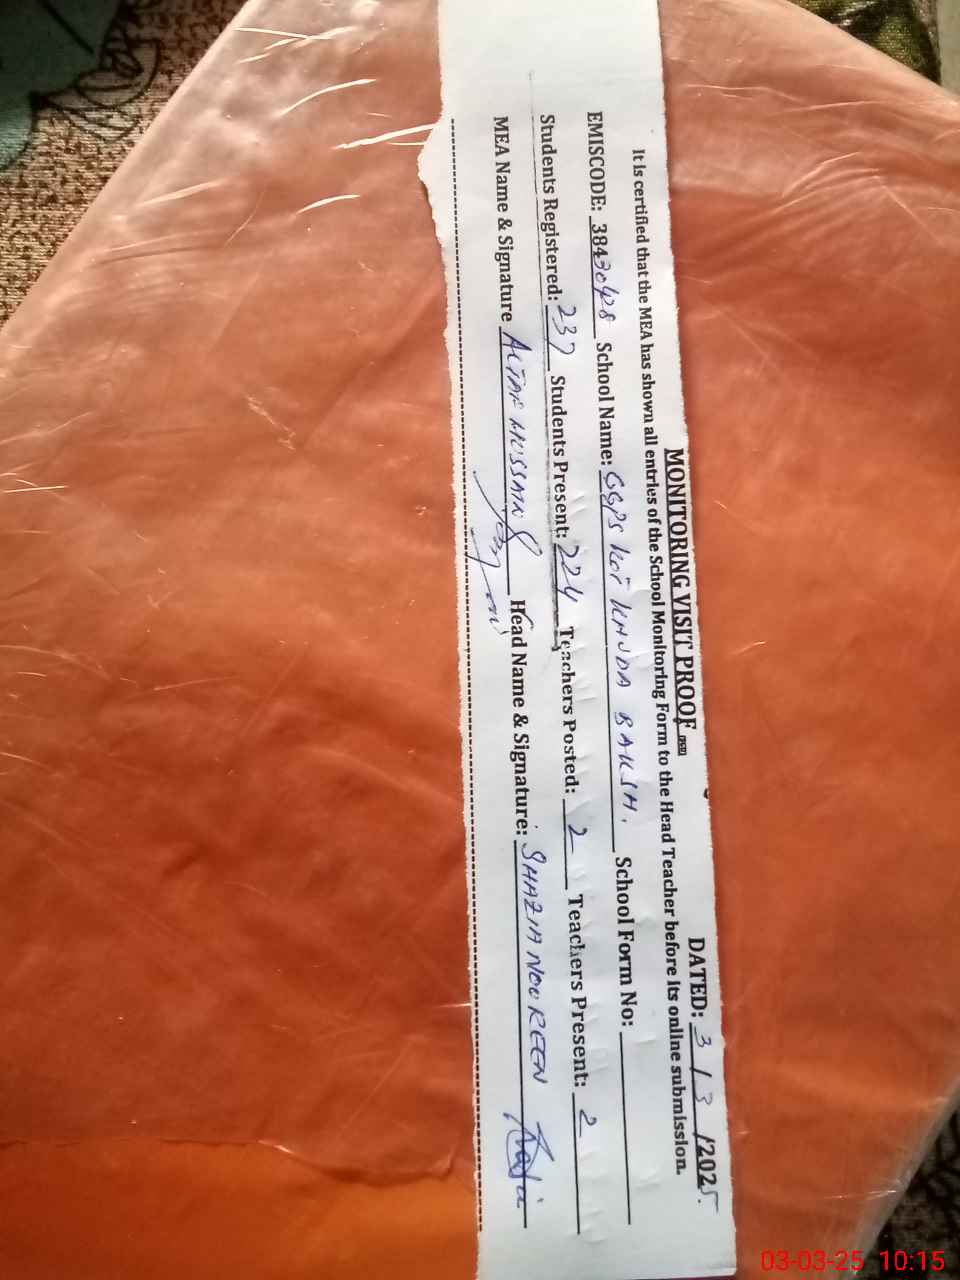 MONITORING VISIT PROOF
DATED: 3/3/2025
It is certified that the MEA has shown all entries of the School Monitoring Form to the Head Teacher before its online submission.
EMISCODE: 38430428 School Name: GGPS KOT KHUDA BAKSH. School Form No:
Students Registered: 237 Students Present: 224 Teachers Posted: 2 Teachers Present: 2
MEA Name & Signature ALTAF HUSSAIN Head Name & Signature: SHAZIA NOUREEN
03-03-25 10:15